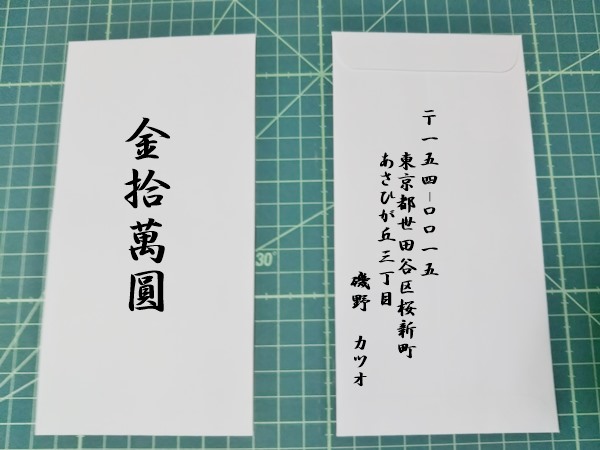 金拾萬圓
〒一五四-〇〇一五
東京都世田谷区桜新町
あさひが丘三丁目
磯野 カツオ
30°